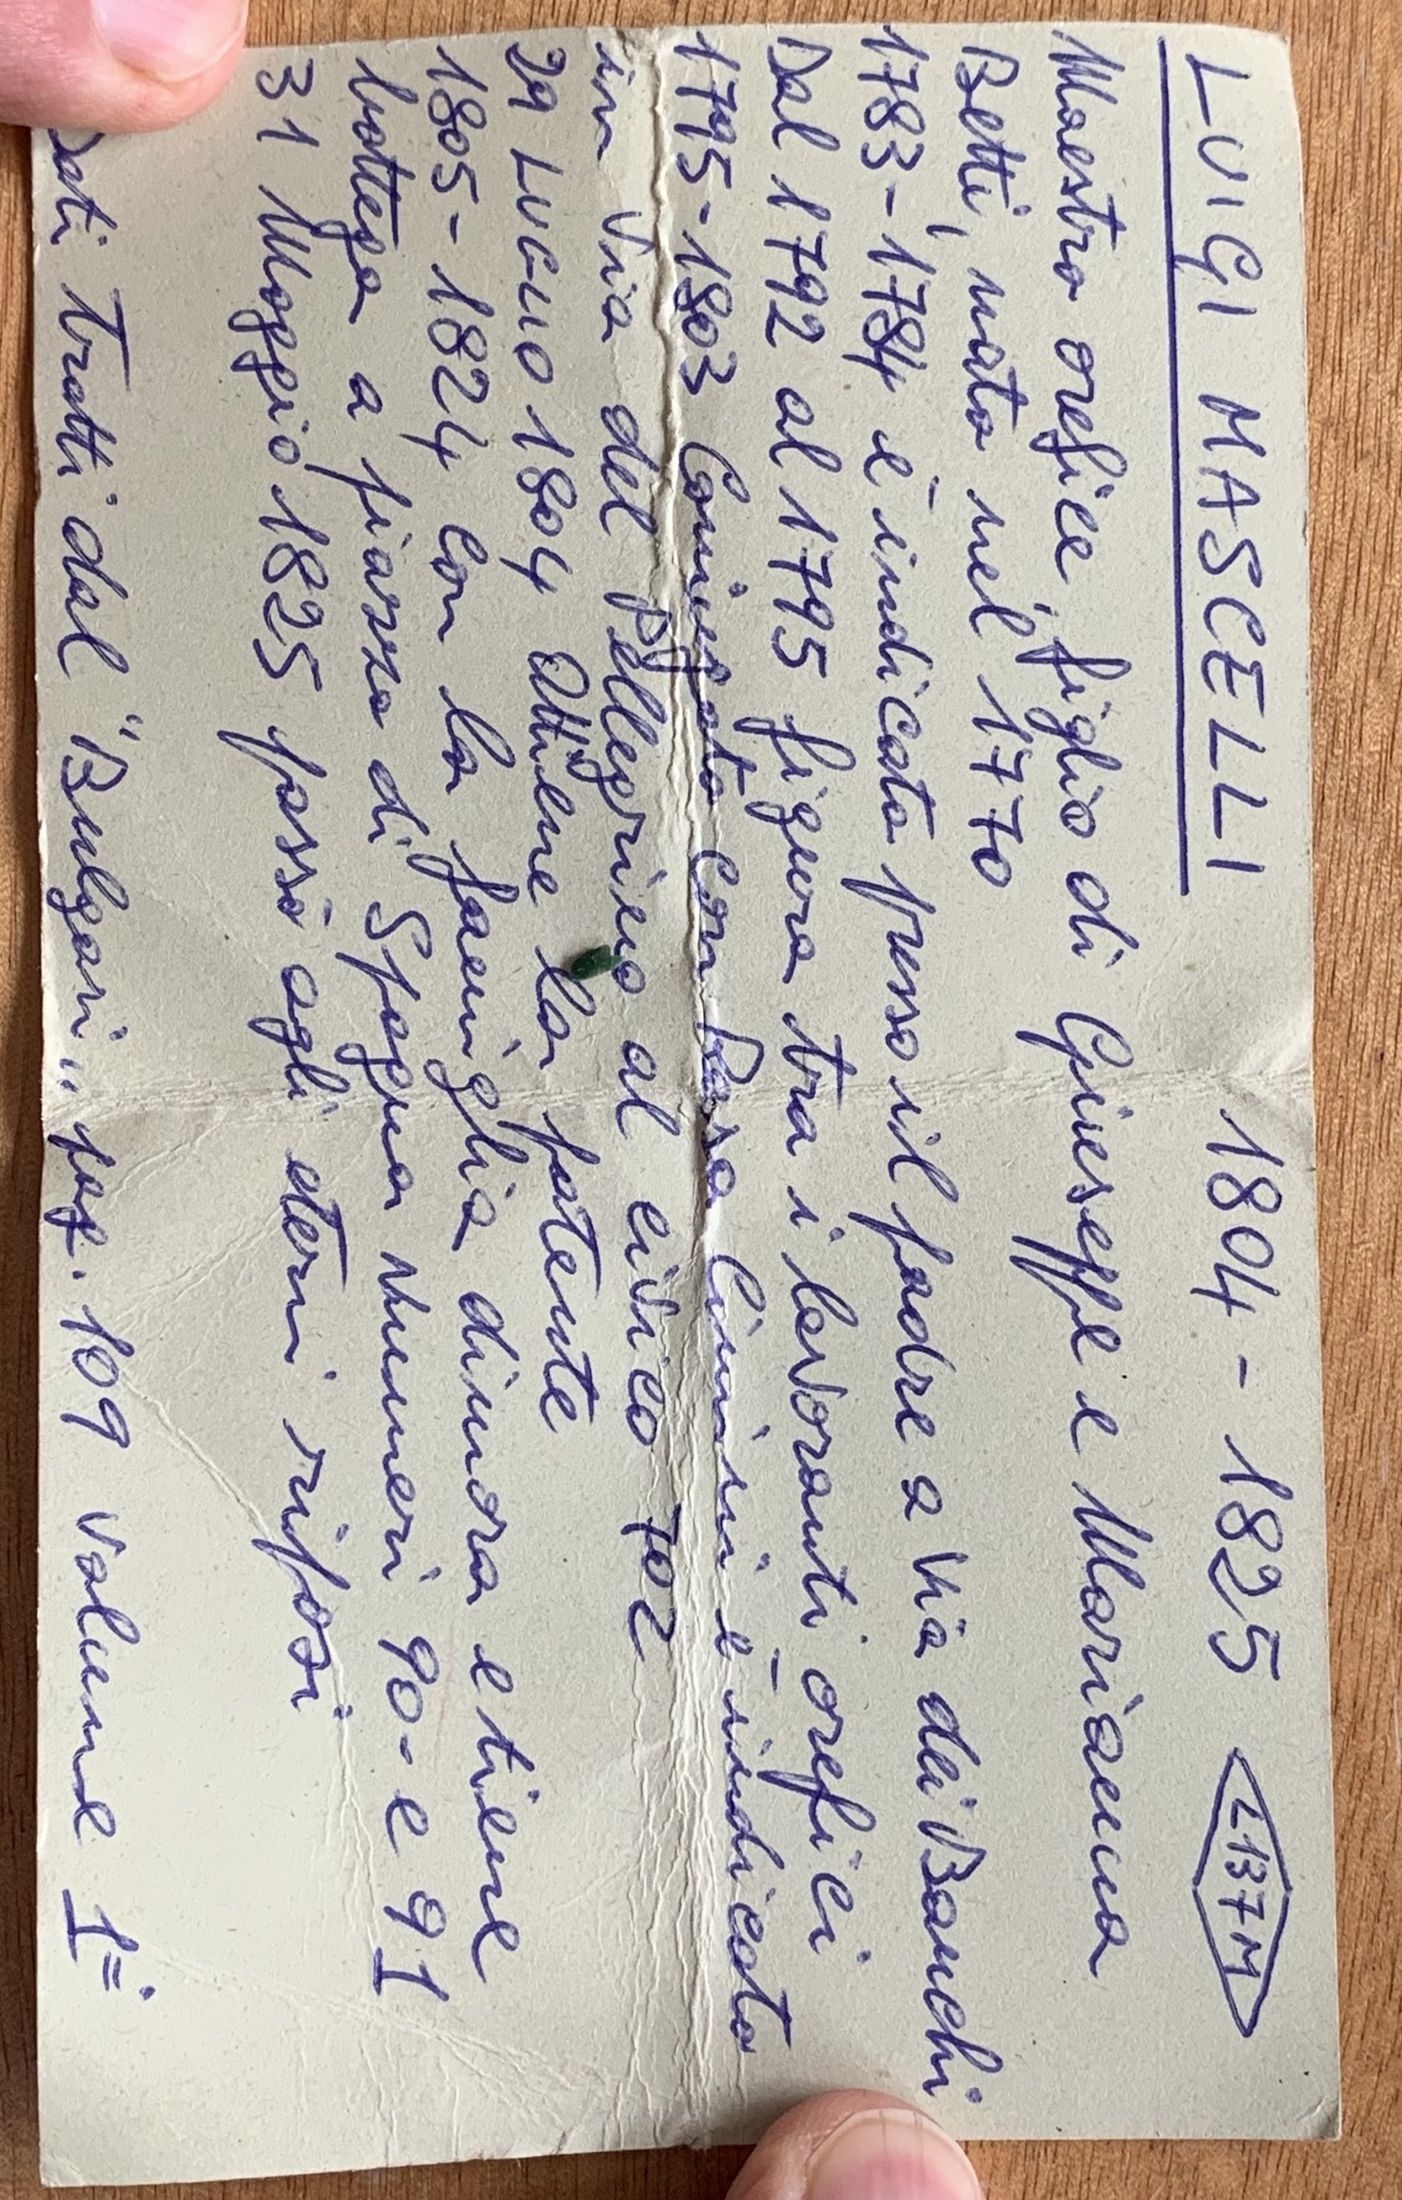 LUIGI MASCELLI 1804-1825 L137M
Maestro orefice, figlio di Giuseppe e Marianna
Betti, nato nel 1770
1783-1784 è indicato presso il padre a Via dei Banchi
Dal 1792 al 1795 figura tra i lavoranti orefici
1795-1803 Coniugato con Rosa Cimini è indicato
in Via del Pellegrino al civico 702
29 Luglio 1804 Ottiene la patente
1805-1824 Con la famiglia dimora e tiene
bottega a piazza di Spagna numeri 90- e 91
31 Maggio 1825 passò agli eterni riposi
Dati tratti dal "Bulgari" pag. 109 Volume 1=